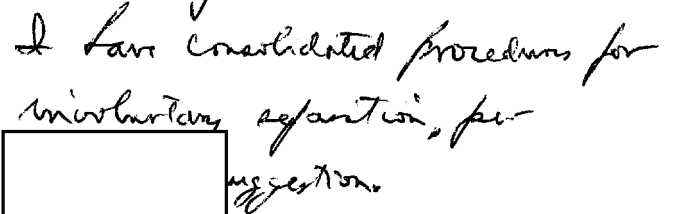 I have consolidated procedures for
involuntary separation, per
uggestion.